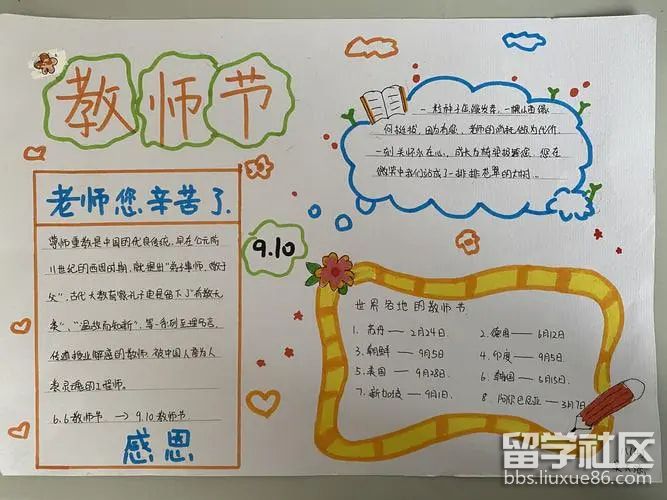 教师节
老师您辛苦了.
尊师重教是中国的优良传统,早在公元前
11世纪的西周时期,就提出"弟子事师,敬于
父",古代大教育家孔子更是留下了"有教无
类"、"温故而知新",等一系列至理名言,
传道授业解惑的教师,被中国人誉为人
类灵魂的工程师。
6.6教师节 → 9.10教师节
感恩
9.10
一棵
何挺拔,因为有您,老师的消耗做为代价,
一刻关怀永在心,成长为
您在
微笑中我们站成了一排排
的大树...
世界各地的教师节
1. 2月24日.
2. 德国——6月12日
3. 朝鲜——9月5日
4. 印度——9月5日.
5. 美国——9月28日.
6. 韩国——5月15日.
7. 新加坡——9月1日.
8. 阿尔巴尼亚——3月7日
留学社区
bbs.liuxue86.com